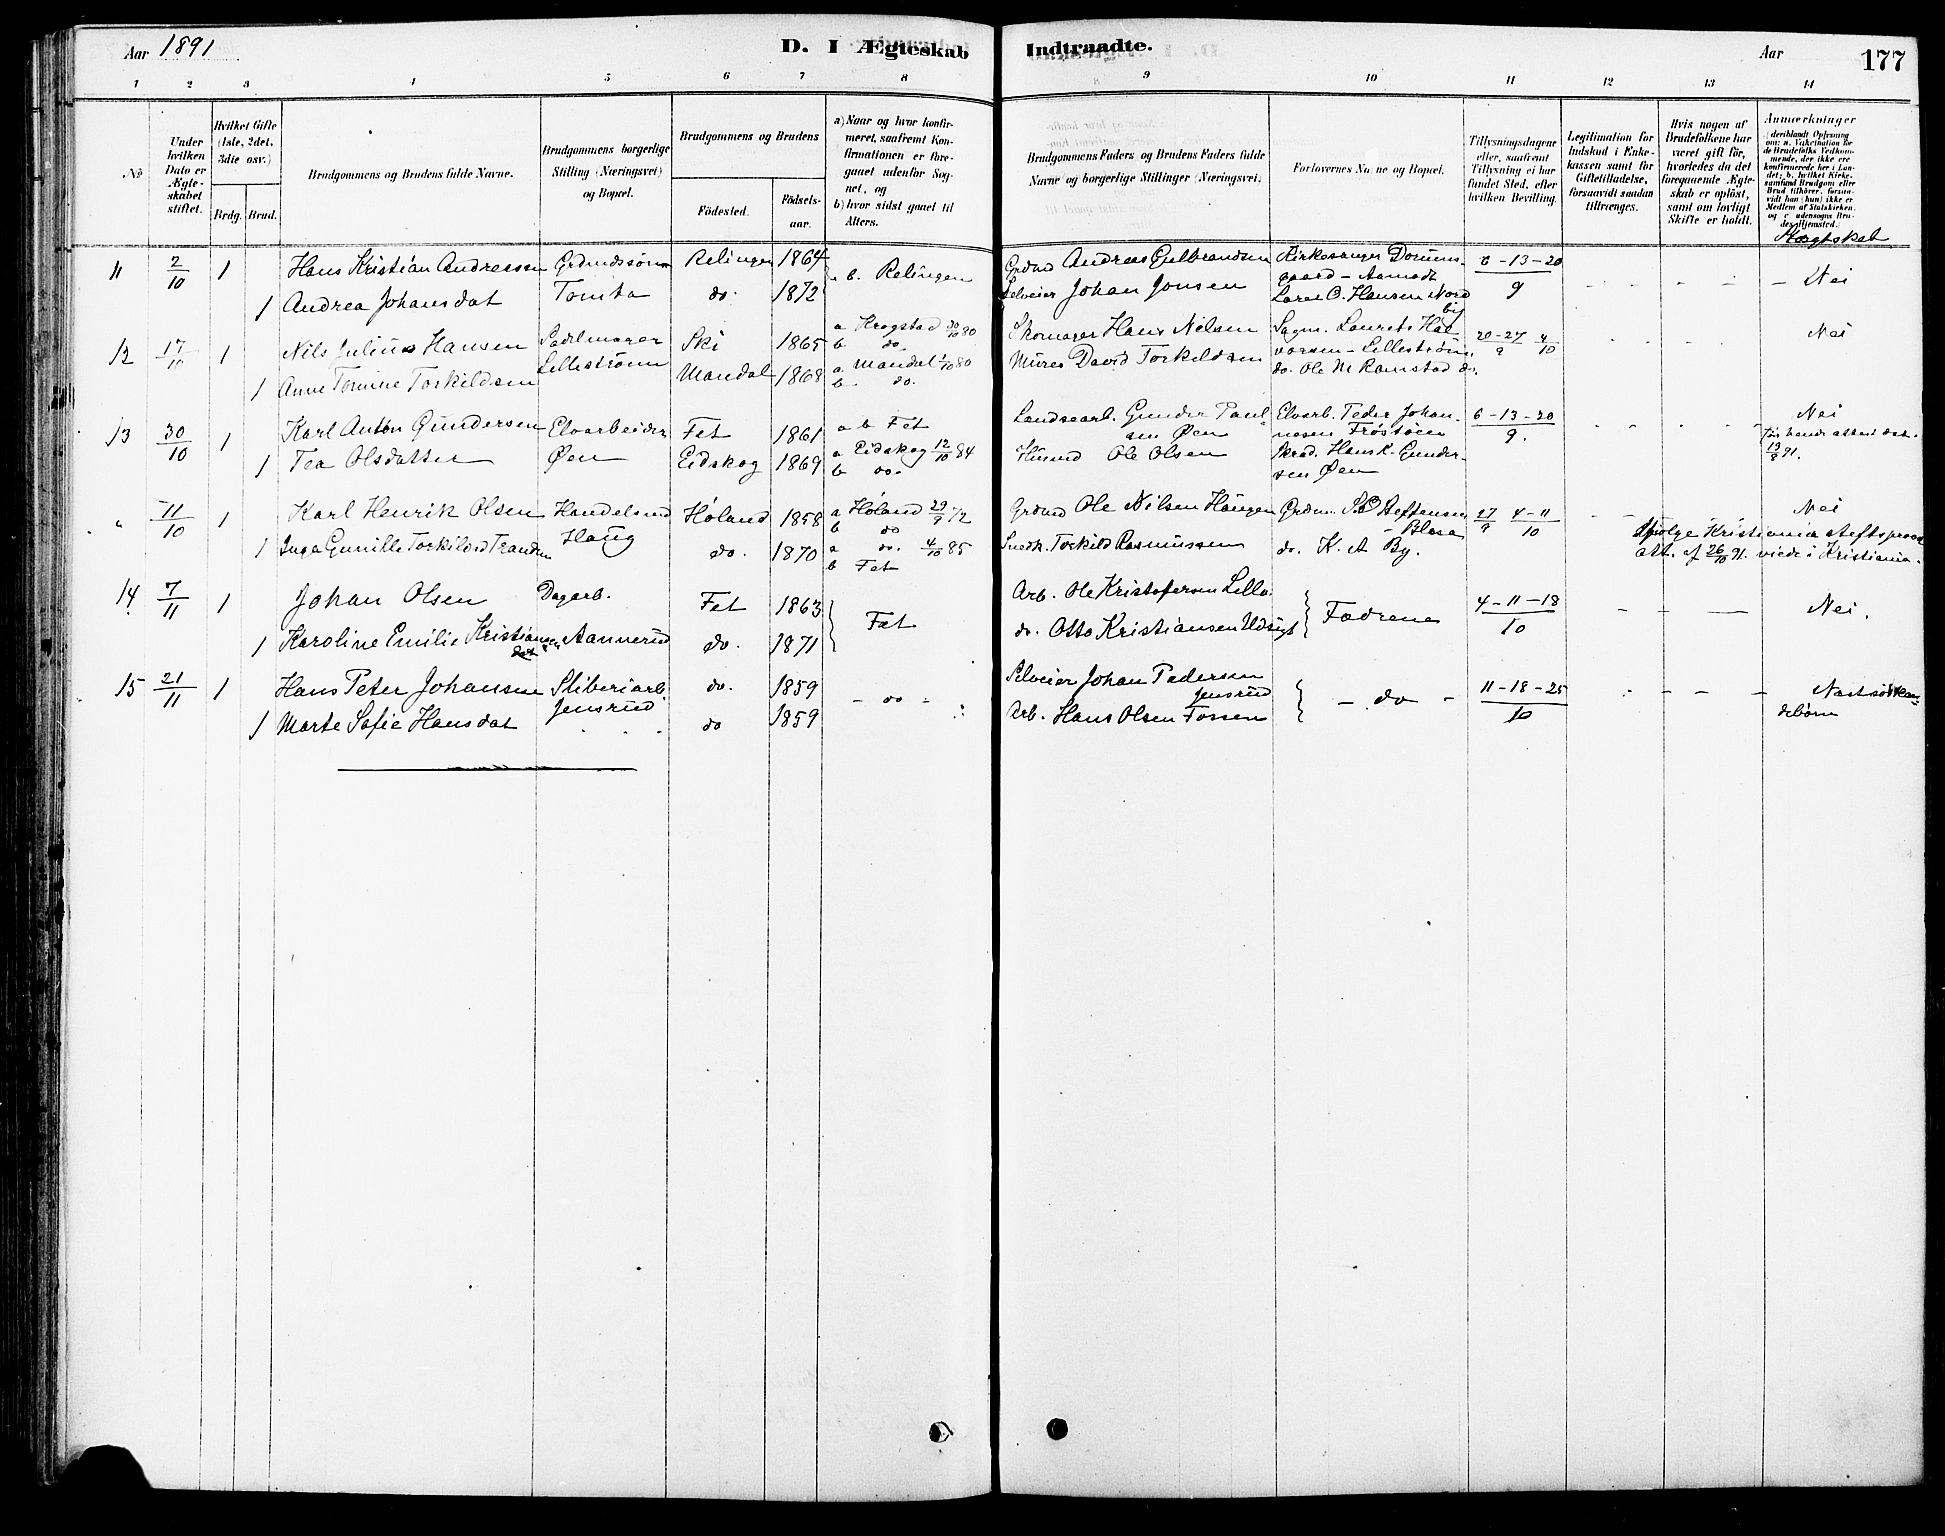 Aar 1891
D. I Ægteskab Indtraadte.
Aar 177
1 2 3 4 5 6 7 8 9 10 11 12 13 14
No
Under hvilken Dato er Ægteskabet stiftet.
Hvilket Gifte (1ste, 2det, 3die osv.)
Brdg. Brud.
Brudgommens og Brudens fulde Navne.
Brudgommens borgerlige Stilling (Næringsvei) og Bopæl.
Brudgommens og Brudens
Födested. Födsels-aar.
a) Naar og hvor konfirmeret, saafremt Konfirmationen er foregaaet udenfor Sognet, og
b) hvor sidst gaaet til Alters.
Brudgommens Faders og Brudens Faders fulde Navne og borgerlige Stillinger (Næringsvei)
Forlovernes Navne og Bopæl.
Tillysningsdagene eller, saafremt Tillysning ei har fundet Sted, efter hvilken Bevilling.
Legitimation for Indskud i Enkekassen samt for Giftetilladelse, forsaavidt saadan tiltrænges.
Hvis nogen af Brudefolkene har været gift för, hvorledes da det foregaaende Ægteskab er oplöst, samt om lovligt Skifte er holdt.
Anmærkninger
Slægtskab
11 2/10 1 Hans Kristian Andreassen Grdmdssøn Relingen 1864 a b. Relingen Grdmd Andreas Gulbrandsen Kirkesanger Donums- 6-13-20/9
gaard - Aamodt
1 Andrea Johansdat Tomta do. 1872 Selveier Johan Jonsen Lærer O. Hansen Nordby Nei
12 17/10 1 Nils Julius Hansen Sadelmager Ski 1865 a Krogstad 30/10 80 b do. Skomager Hans Nilsen Sagm. Laurits Hal- 20-27/9 4/10 Nei
vorsen - Lillestrøm
1 Anne Tomine Torkildsen Lillestrøm Mandal 1868 a Mandal 1/10 80 b do. Murer David Torkildsen do. Ole M Ramstad do.
13 30/10 1 Karl Anton Gundersen Elvarbeider Fet 1861 a b Fet Landsearb. Gunder Paul- Elvarb. Peder Johan- 6-13-20/9. Nei
sen Øen nesen Frøstøen
1 Tea Olsdatter Øen Eidskog 1869 a Eidskog 12/10 84 b do. Husmd Ole Olsen Skræd. Hans K. Gunder- 13/8 91.
sen Øen
" 11/10 1 Karl Henrik Olsen Handelsmd Høland 1858 a Høland 29/9 72 b do Grdmd Ole Nilsen Haugen Grdm. S. O Steffensen 27/9 4-11/10 Nei
Blesa
1 Inga Gunille Torkildsd Tranden Haug do. 1870 a do. 4/10 85 b Fet Snedk. Torkild Rasmussen do. K. A By. Ifølge Kristiania stiftsprovst
att. af 26/10 91. viede i Kristiania.
14 7/11 1 Johan Olsen Dagarb. Fet 1863 Fet Arb. Ole Kristofersen Lille Fædrene 4-11-18/10 Nei.
1 Karoline Emilie Kristiansdat Aannerud do. 1871 do. Otto Kristiansen Udsigt
15 21/11 1 Hans Peter Johansen Sliberiarb. do. 1859 - do - Selveier Johan Pedersen - do - 11-18-25/10 Næstsøsken-
Jensrud
1 Marte Sofie Hansdat Jensrud do 1859 Arb. Hans Olsen Fossen debørn